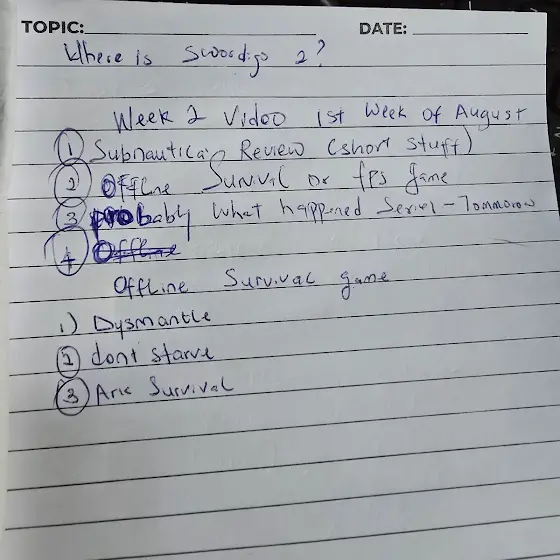 TOPIC: DATE:
Where is Swordigo 2?
Week 2 Video 1st Week of August
1 Subnautica Review (short stuff)
2 Offline Survival or fps game
3 probably What happened Series - Tommorow
4 Offline
Offline Survival game
1) Dysmantle
2 dont starve
3 Ark Survival